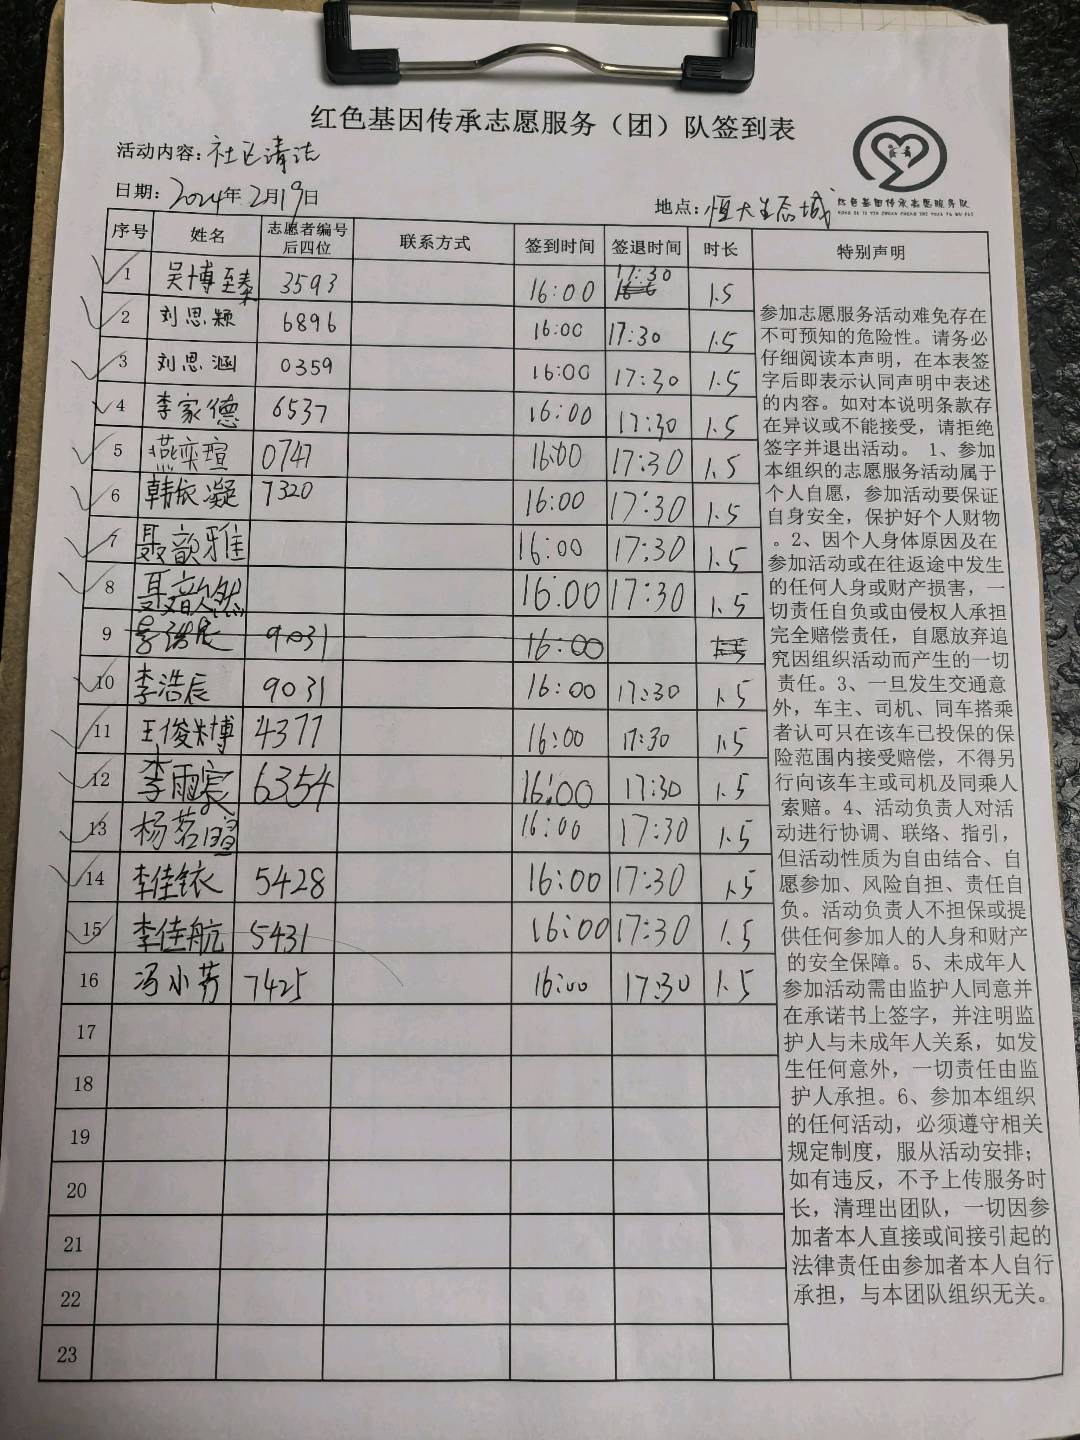 红色基因传承志愿服务（团）队签到表
活动内容：社区清洁
日期：2024年2月19日
地点：恒大生态城
红色基因传承志愿服务队
HONG SE JI YIN CHUAN CHENG ZHI YUAN FU WU DUI
序号 姓名 志愿者编号后四位 联系方式 签到时间 签退时间 时长 特别声明
1 吴博至秦 3593 16:00 17:30 1.5
2 刘思颖 6896 16:00 17:30 1.5
3 刘思涵 0359 16:00 17:30 1.5
4 李家德 6537 16:00 17:30 1.5
5 燕奕瑄 0747 16:00 17:30 1.5
6 韩依凝 7320 16:00 17:30 1.5
7 聂歆雅 16:00 17:30 1.5
8 16.00 17:30 1.5
9 9031 16:00
10 李浩辰 9031 16:00 17:30 1.5
11 王俊博 4377 16:00 17:30 1.5
12 李雨宸 6354 16:00 17:30 1.5
13 杨茗 16:00 17:30 1.5
14 李佳铱 5428 16:00 17:30 1.5
15 李佳航 5431 16:00 17:30 1.5
16 冯小芳 7425 16:00 17:30 1.5
17
18
19
20
21
22
23
参加志愿服务活动难免存在
不可预知的危险性。请务必
仔细阅读本声明，在本表签
字后即表示认同声明中表述
的内容。如对本说明条款存
在异议或不能接受，请拒绝
签字并退出活动。 1、参加
本组织的志愿服务活动属于
个人自愿，参加活动要保证
自身安全，保护好个人财物
。2、因个人身体原因及在
参加活动或在往返途中发生
的任何人身或财产损害，一
切责任自负或由侵权人承担
完全赔偿责任，自愿放弃追
究因组织活动而产生的一切
责任。3、一旦发生交通意
外，车主、司机、同车搭乘
者认可只在该车已投保的保
险范围内接受赔偿，不得另
行向该车主或司机及同乘人
索赔。4、活动负责人对活
动进行协调、联络、指引，
但活动性质为自由结合、自
愿参加、风险自担、责任自
负。活动负责人不担保或提
供任何参加人的人身和财产
的安全保障。5、未成年人
参加活动需由监护人同意并
在承诺书上签字，并注明监
护人与未成年人关系，如发
生任何意外，一切责任由监
护人承担。6、参加本组织
的任何活动，必须遵守相关
规定制度，服从活动安排；
如有违反，不予上传服务时
长，清理出团队，一切因参
加者本人直接或间接引起的
法律责任由参加者本人自行
承担，与本团队组织无关。